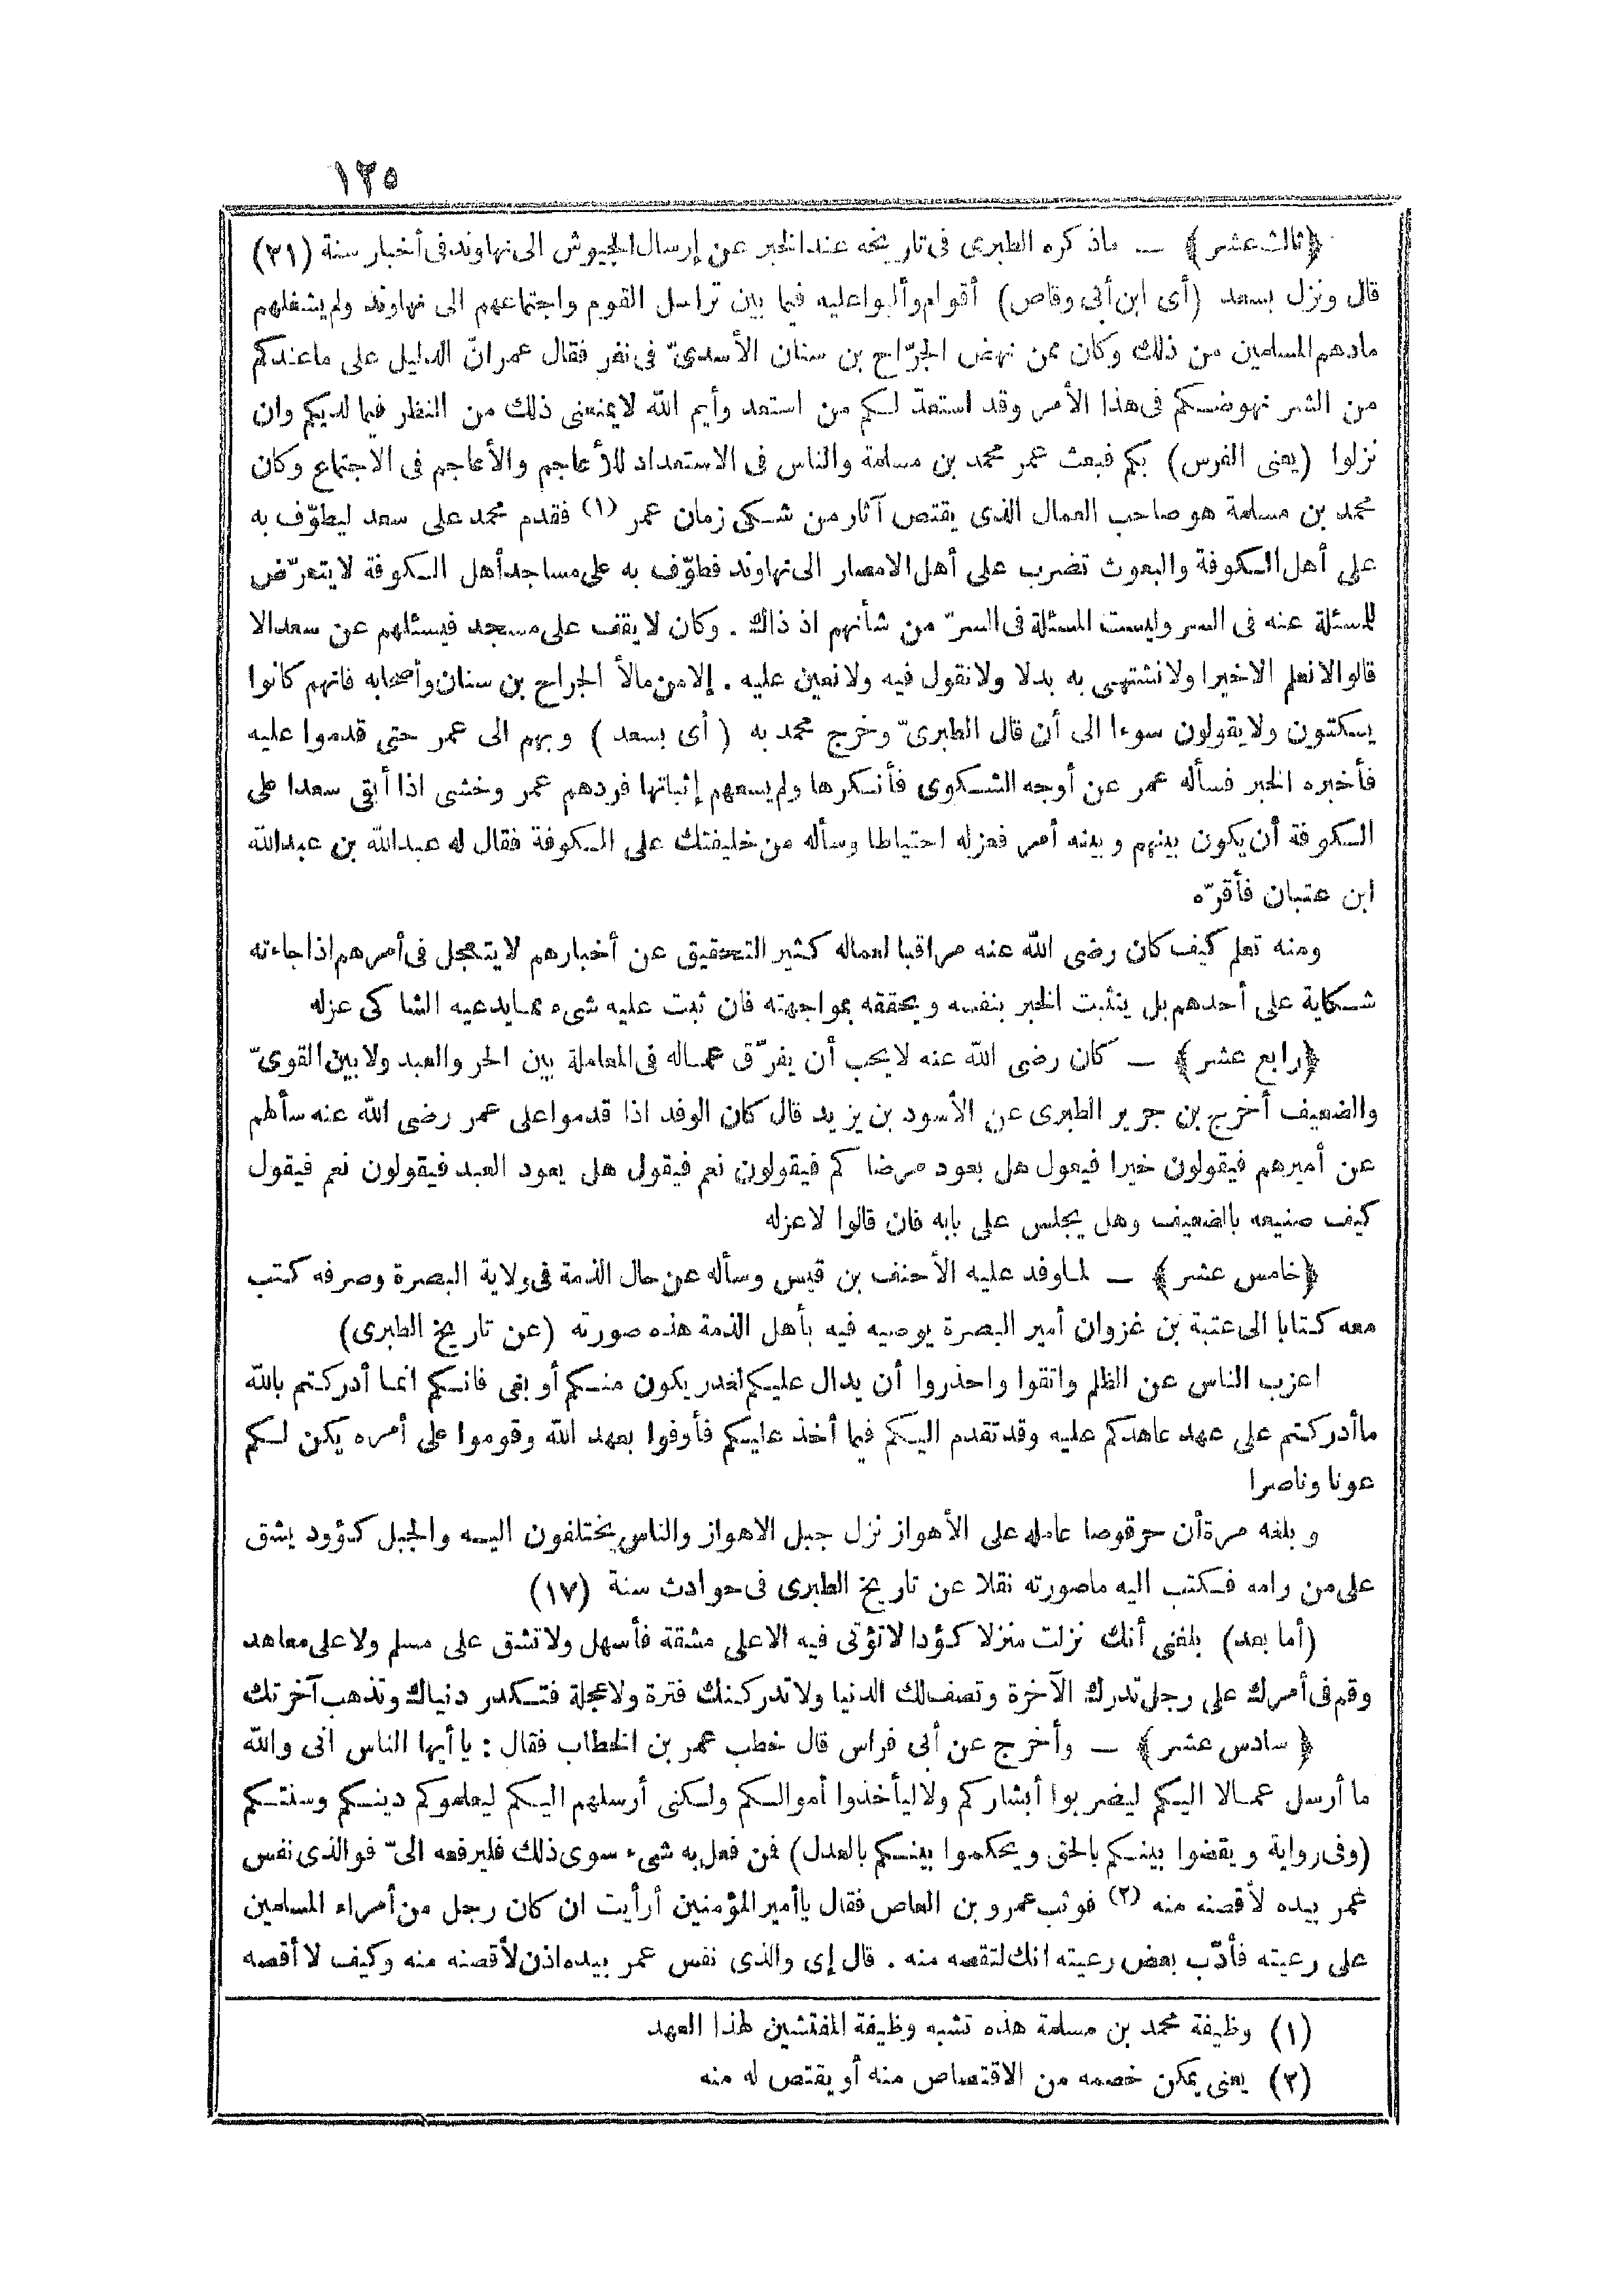 ١٣٥
﴿ثالث عشر﴾ — ماذكره الطبرى فى تاريخه عند الخبر عن إرسال الجيوش الى نهاوند فى أخبار سنة (٣١)
قال ونزل بسعد (أى ابن أبى وقاص) أقوام وألبوا عليه فيما بين تراسل القوم واجتماعهم الى نهاوند ولم يشغلهم
مادهم المسلمين من ذلك وكان ممن نهض الجرّاح بن سنان الأسدىّ فى نفر فقال عمر انّ الدليل على ماعندكم
من الشر نهوضكم فى هذا الأمر وقد استعدّ لكم من استعد وأيم الله لا يمنعنى ذلك من النظر فيما لديكم وان
نزلوا (يعنى الفرس) بكم فبعث عمر محمد بن مسلمة والناس فى الاستعداد للأعاجم والأعاجم فى الاجتماع وكان
محمد بن مسلمة هو صاحب العمال الذى يقتص آثار من شكى زمان عمر (١) فقدم محمد على سعد ليطوّف به
على أهل الكوفة والبعوث تضرب على أهل الامصار الى نهاوند فطوّف به على مساجد أهل الكوفة لا يتعرّض
للمسئلة عنه فى السر وليست المسئلة فى السرّ من شأنهم اذ ذاك . وكان لا يقف على مسجد فيسئلهم عن سعد الا
قالوا لا نعلم الا خيرا ولا نشتهى به بدلا ولا نقول فيه ولا نعين عليه . إلا من مالأ الجراح بن سنان وأصحابه فانهم كانوا
يسكتون ولا يقولون سوءا الى أن قال الطبرىّ وخرج محمد به (أى بسعد) وبهم الى عمر حتى قدموا عليه
فأخبره الخبر فسأله عمر عن أوجه الشكوى فأنكرها ولم يسعهم إثباتها فردهم عمر وخشى اذا أبقى سعدا على
الكوفة أن يكون بينهم وبينه أمر فعزله احتياطا وسأله من خليفتك على الكوفة فقال له عبدالله بن عبدالله
ابن عتبان فأقرّه
ومنه تعلم كيف كان رضى الله عنه مراقبا لعماله كثير التحقيق عن أخبارهم لا يتعجل فى أمرهم اذا جاءته
شكاية على أحدهم بل يتثبت الخبر بنفسه ويحققه بمواجهته فان ثبت عليه شىء مما يدعيه الشاكى عزله
﴿رابع عشر﴾ — كان رضى الله عنه لا يحب أن يفرّق عماله فى المعاملة بين الحر والعبد ولا بين القوىّ
والضعيف أخرج بن جرير الطبرى عن الأسود بن يزيد قال كان الوفد اذا قدموا على عمر رضى الله عنه سألهم
عن أميرهم فيقولون خيرا فيقول هل يعود مرضاكم فيقولون نعم فيقول هل يعود العبد فيقولون نعم فيقول
كيف صنيعه بالضعيف وهل يجلس على بابه فان قالوا لا عزله
﴿خامس عشر﴾ — لما وفد عليه الأحنف بن قيس وسأله عن حال الذمة فى ولاية البصرة وصرفه كتب
معه كتابا الى عتبة بن غزوان أمير البصرة يوصيه فيه بأهل الذمة هذه صورته (عن تاريخ الطبرى)
اعزب الناس عن الظلم واتقوا واحذروا أن يدال عليكم لغدر يكون منكم أو بغى فانكم انما أدركتم بالله
ماأدركتم على عهد عاهدكم عليه وقد تقدم اليكم فيما أخذ عليكم فأوفوا بعهد الله وقوموا على أمره يكن لكم
عونا وناصرا
وبلغه مرة أن حرقوصا عامله على الأهواز نزل جبل الاهواز والناس يختلفون اليه والجبل كؤود يشق
على من رامه فكتب اليه ماصورته نقلا عن تاريخ الطبرى فى حوادث سنة (١٧)
(أما بعد) بلغنى أنك نزلت منزلا كؤدا لا تؤتى فيه الا على مشقة فأسهل ولا تشق على مسلم ولا على معاهد
وقم فى أمرك على رجل تدرك الآخرة وتصف لك الدنيا ولا تدركنك فترة ولا عجلة فتكدر دنياك وتذهب آخرتك
﴿سادس عشر﴾ — وأخرج عن أبى فراس قال خطب عمر بن الخطاب فقال : ياأيها الناس انى والله
ماأرسل عمالا اليكم ليضربوا أبشاركم ولا ليأخذوا أموالكم ولكنى أرسلهم اليكم ليعلموكم دينكم وسنتكم
(وفى رواية ويقضوا بينكم بالحق ويحكموا بينكم بالعدل) فمن فعل به شىء سوى ذلك فليرفعه الىّ فوالذى نفس
عمر بيده لأقصنه منه (٢) فوثب عمرو بن العاص فقال ياأمير المؤمنين أرأيت ان كان رجل من أمراء المسلمين
على رعيته فأدّب بعض رعيته انك لتقصه منه . قال إى والذى نفس عمر بيده اذن لأقصنه منه وكيف لا أقصه
(١) وظيفة محمد بن مسلمة هذه تشبه وظيفة المفتشين لهذا العهد
(٢) يعنى يمكن خصمه من الاقتصاص منه أو يقتص له منه